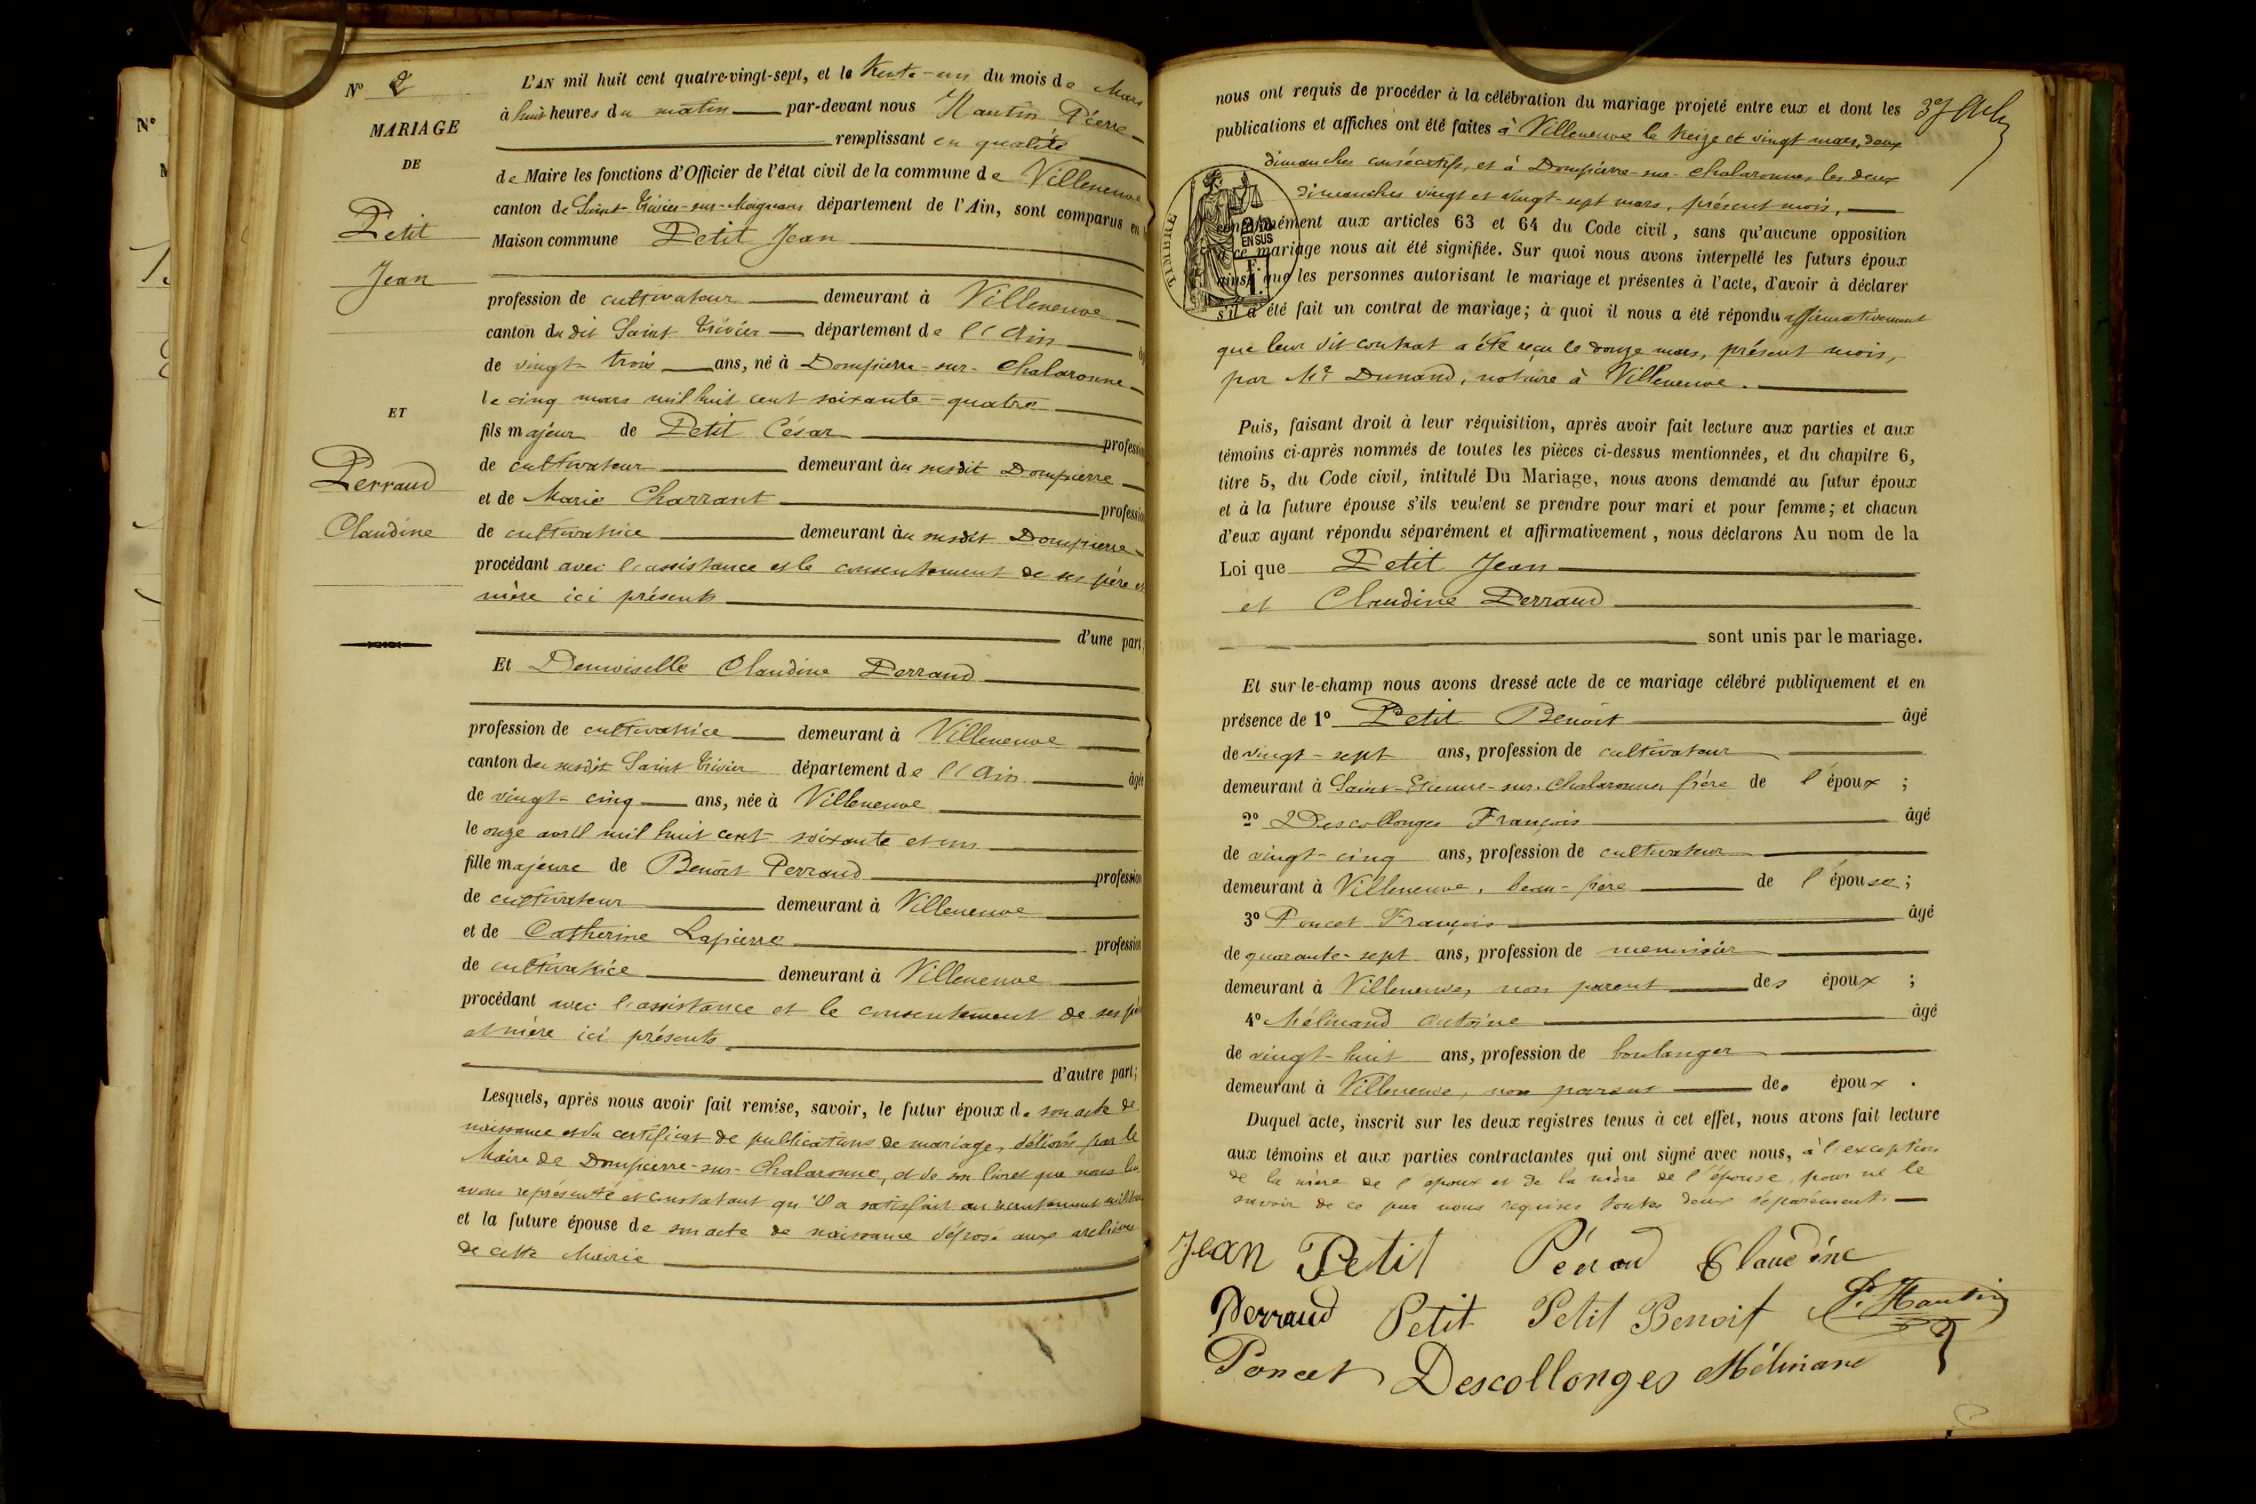 N° 2
MARIAGE
DE
Petit
Jean
ET
Perraud
Claudine
N°
L'AN mil huit cent quatre-vingt-sept, et le trente-un du mois de Mars
à huit heures du matin par-devant nous Hautin Pierre
remplissant en qualité
de Maire les fonctions d'Officier de l'état civil de la commune de Villeneuve
canton de Saint-Trivier-sur-Moignans département de l'Ain, sont comparus en
Maison commune Petit Jean
profession de cultivateur demeurant à Villeneuve
canton du dit Saint Trivier département de l'Ain
de vingt-trois ans, né à Dompierre-sur-Chalaronne
le cinq mars mil huit cent soixante-quatre
fils majeur de Petit César profession
de cultivateur demeurant au susdit Dompierre
et de Marie Charrant profession
de cultivatrice demeurant au susdit Dompierre
procédant avec l'assistance et le consentement de ses père et
mère ici présents
d'une part
Et Demoiselle Claudine Perraud
profession de cultivatrice demeurant à Villeneuve
canton du susdit Saint Trivier département de l'Ain âgée
de vingt-cinq ans, née à Villeneuve
le onze avril mil huit cent soixante et un
fille majeure de Benoît Perraud profession
de cultivateur demeurant à Villeneuve
et de Catherine Lapierre profession
de cultivatrice demeurant à Villeneuve
procédant avec l'assistance et le consentement de ses père
et mère ici présents
d'autre part;
Lesquels, après nous avoir fait remise, savoir, le futur époux de son acte de
naissance et du certificat de publications de mariage, délivrés par le
Maire de Dompierre-sur-Chalaronne, et de son livret que nous lui
avons représenté et constatant qu'il a satisfait au recrutement militaire
et la future épouse de son acte de naissance déposé aux archives
de cette Mairie
nous ont requis de procéder à la célébration du mariage projeté entre eux et dont les
publications et affiches ont été faites à Villeneuve le treize et vingt mars, deux
dimanches consécutifs, et à Dompierre-sur-Chalaronne, les deux
dimanches vingt et vingt-sept mars, présent mois,
TIMBRE
EN SUS
conformément aux articles 63 et 64 du Code civil, sans qu'aucune opposition
à ce mariage nous ait été signifiée. Sur quoi nous avons interpellé les futurs époux
ainsi que les personnes autorisant le mariage et présentes à l'acte, d'avoir à déclarer
s'il a été fait un contrat de mariage; à quoi il nous a été répondu affirmativement
que leur dit contrat a été reçu le douze mars, présent mois,
par Me Dunand, notaire à Villeneuve.
Puis, faisant droit à leur réquisition, après avoir fait lecture aux parties et aux
témoins ci-après nommés de toutes les pièces ci-dessus mentionnées, et du chapitre 6,
titre 5, du Code civil, intitulé Du Mariage, nous avons demandé au futur époux
et à la future épouse s'ils veulent se prendre pour mari et pour femme; et chacun
d'eux ayant répondu séparément et affirmativement, nous déclarons Au nom de la
Loi que Petit Jean
et Claudine Perraud
sont unis par le mariage.
Et sur-le-champ nous avons dressé acte de ce mariage célébré publiquement et en
présence de 1° Petit Benoit âgé
de vingt-sept ans, profession de cultivateur
demeurant à Saint-Etienne-sur-Chalaronne, frère de l'époux ;
2° Descollonges François âgé
de vingt-cinq ans, profession de cultivateur
demeurant à Villeneuve, beau-frère de l'épouse;
3° Poncet François âgé
de quarante-sept ans, profession de menuisier
demeurant à Villeneuve, non parent des époux ;
4° Mélinand Antoine âgé
de vingt-huit ans, profession de boulanger
demeurant à Villeneuve, non parent des époux .
Duquel acte, inscrit sur les deux registres tenus à cet effet, nous avons fait lecture
aux témoins et aux parties contractantes qui ont signé avec nous, à l'exception
de la mère de l'époux et de la mère de l'épouse, pour ne le
savoir de ce par nous requises toutes deux séparément.
Jean Petit Péraud Claudine
Perraud Petit Petit Benoit P. Hautin
Poncet Descollonges Mélinand